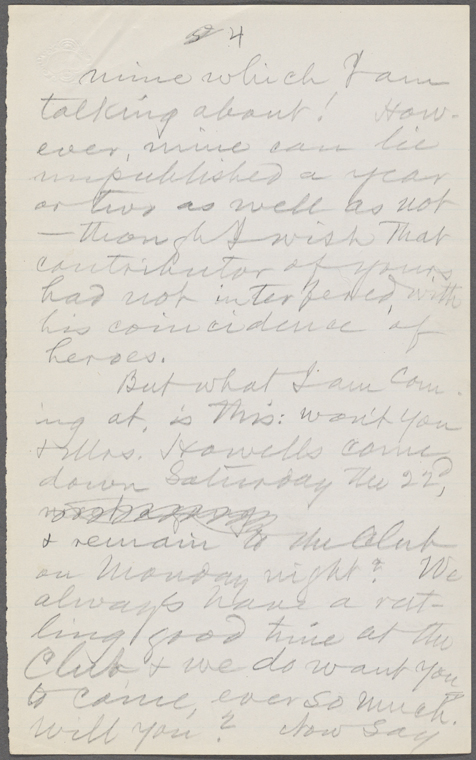 4
mine which I am
talking about! How-
ever, mine can lie
unpublished a year
or two as well as not
—though I wish that
contributor of yours
had not interfered with
his coincidence of
heroes.
But what I am com-
ing at, is this: won't you
& Mrs. Howells come
down Saturday the 22d,
& remain to the Club
on Monday night? We
always have a rat-
tling good time at the
Club & we do want you
to come, ever so much.
Will you? Now say